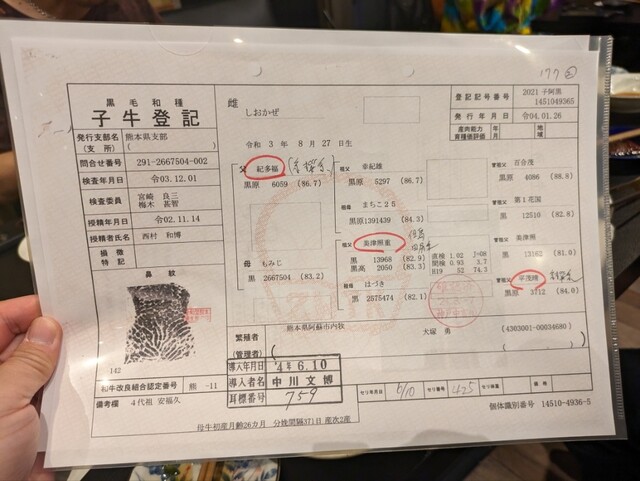 177 ②
黒毛和種
子牛登記
雌
しおかぜ
登記記号番号
2021子阿黒
1451049365
発行年月日
令04.01.26
産肉能力
育種価評価
年
月
地
域
発行支部名
(支所)
熊本県支部
( )
令和 3年 8月27日生
問合せ番号
291-2667504-002
検査年月日
令03.12.01
検査委員
宮崎 良三
梅木 甚智
授精年月日
令02.11.14
授精者氏名
西村 和博
損徴
特記
鼻紋
142
父
紀多福
黒原 6059 (86.7)
祖父
幸紀雄
黒原 5297 (84.3)
曾祖父
百合茂
黒原 4086 (88.8)
祖母
まちこ25
黒原1391439 (84.3)
曾祖父
第1花国
黒原 12510 (82.8)
母 もみじ
黒 2667504 (83.2)
祖父
美津照重
黒 13968 (82.9)
黒高 2050 (83.3)
直検 1.02 J=08
間検 0.93 3.7
B19 52 74.3
曾祖父
美津照
黒 13162 (81.0)
祖母
はづき
黒 2575474 (82.1)
曾祖父
平茂晴
黒原 3712 (84.0)
繁殖者
(管理者)
熊本県阿蘇市内牧
犬塚 勇
(4303001-00034680)
導入年月日
4年6.10
導入者名
中川 文博
耳標番号
759
和牛改良組合認定番号
熊 -11
備考欄
4代祖 安福久
セリ年月日
6/10
セリ番号
425
セリ体重
価格
母牛初産月齢26カ月 分娩間隔371日 産次2産
個体識別番号 14510-4936-5